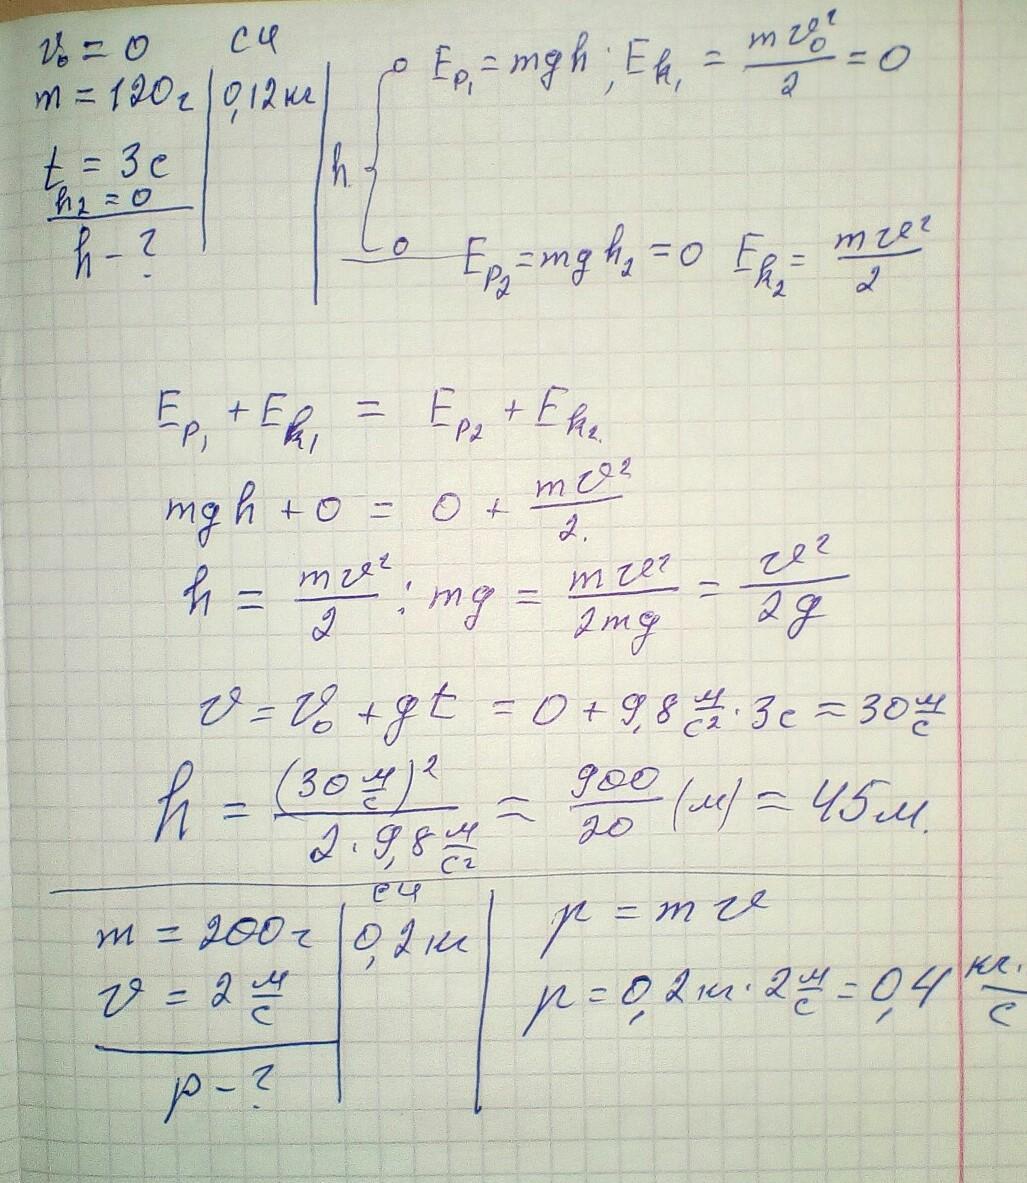 v₀ = 0 СИ
m = 120г 0,12кг
t = 3с
h₂ = 0
h - ?
h
Eₚ₁ = mgh ; Eₖ₁ = mv₀²/2 = 0
Eₚ₂ = mgh₂ = 0 Eₖ₂ = mv²/2
Eₚ₁ + Eₖ₁ = Eₚ₂ + Eₖ₂.
mgh + 0 = 0 + mv²/2.
h = mv²/2 : mg = mv²/2mg = v²/2g
v = v₀ + gt = 0 + 9,8 м/с² · 3с = 30 м/с
h = (30 м/с)²/2 · 9,8 м/с² = 900/20 (м) = 45м.
СИ
m = 200г 0,2кг
v = 2 м/с
p - ?
p = mv
p = 0,2кг · 2 м/с = 0,4 кг·/с